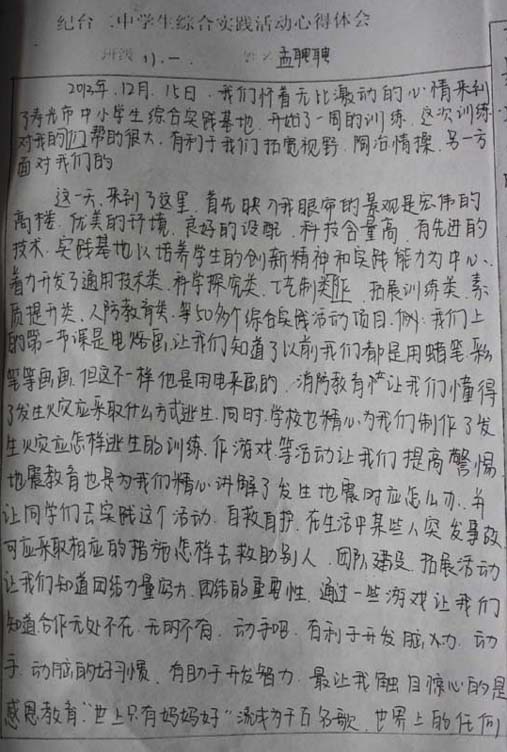 纪台二中学生综合实践活动心得体会
班级 1).一 姓名 孟聘聘
2012年.12月.15日.我们怀着无比激动的心情来利
了寿光市中小学生综合实践基地.开始了一周的训练.这次训练
对我的们帮的很大.有利于我们拓宽视野.陶冶情操.另一方
面对我们的
这一天.来到了这里.首先映入我眼帘的景观是宏伟的
高楼.优美的环境.良好的设配.科技含量高.有先进的
技术.实践基地以培养学生的创新精神和实践能力为中心、
着力开发了通用技术类.科学探究类.工艺制类.拓展训练类.素
质提升类.人防教育类.等50多个综合实践活动项目.例:我们上
的第一节课是电烙画.让我们知道了以前我们都是用蜡笔彩
笔等画画.但这不一样他是用电来画的.消防教育让我们懂得
了发生火灾应采取什么方式逃生.同时.学校也精心为我们制作了发
生火灾应怎样逃生的训练.作游戏.等活动让我们提高警惕.
地震教育也是为我们精心讲解了发生地震时应怎么办.并
让同学们去实践这个活动.自救自护.在生活中某些人突发事故
可应采取相应的措施怎样去救助别人.团队建设.拓展活动
让我们知道团结力量大.团结的重要性.通过一些游戏让我们
知道.合作无处不在.无时不有.动手吧.有利于开发脑力.动
手.动脑的好习惯.有助于开发智力.最让我触目惊心的是
感恩教育."世上只有妈妈好"流传为千百名歌.世界上的任何